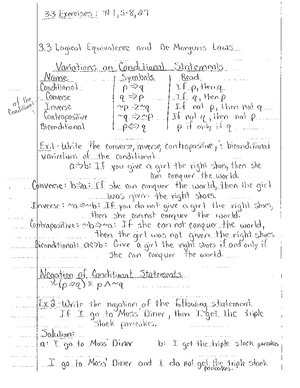 3.3 Exercises: #1,5-8,27
3.3 Logical Equivalence and De Morgan's Laws
Variations on Conditional Statements
Name Symbols Read
Conditional p → q If p, then q
Converse q → p If q, then p
Inverse ~p → ~q If not p, then not q
Contrapositive ~q → ~p If not q, then not p
Biconditional p ↔ q p if only if q
of the Conditional
Ex.1 - Write the converse, inverse, contrapositive, & biconditional
variations of the conditional
a → b: If you give a girl the right shoes, then she
can conquer the world.
Converse: b → a: If she can conquer the world, then the girl
was given the right shoes.
Inverse: ~a → ~b: If you do not give a girl the right shoes,
then she cannot conquer the world.
Contrapositive: ~b → ~a: If she can not conquer the world,
then the girl was not given the right shoes.
Biconditional: a ↔ b: Give a girl the right shoes if and only if
she can conquer the world.
Negation of Conditional Statements
~(p → q) ≡ p ∧ ~q
Ex 2 - Write the negation of the following statement
If I go to Moss' Diner, then I get the triple
stack pancakes.
Solution:
a: I go to Moss' Diner b: I get the triple stack pancakes
I go to Moss' Diner and I do not get the triple stack
pancakes.